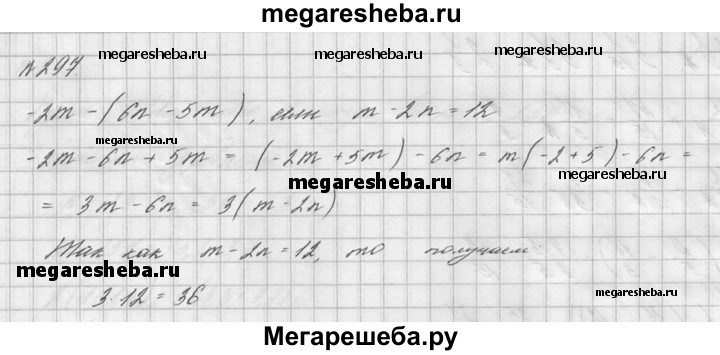 megaresheba.ru
megaresheba.ru
megaresheba.ru
№297
megaresheba.ru
-2m - (6n - 5m), если m - 2n = 12
megaresheba.ru
-2m - 6n + 5m = (-2m + 5m) - 6n = m(-2+5) - 6n =
megaresheba.ru
megaresheba.ru
= 3m - 6n = 3(m - 2n)
Так как m - 2n = 12, то получаем
megaresheba.ru
megaresheba.ru
3·12 = 36
Мегарешеба.ру